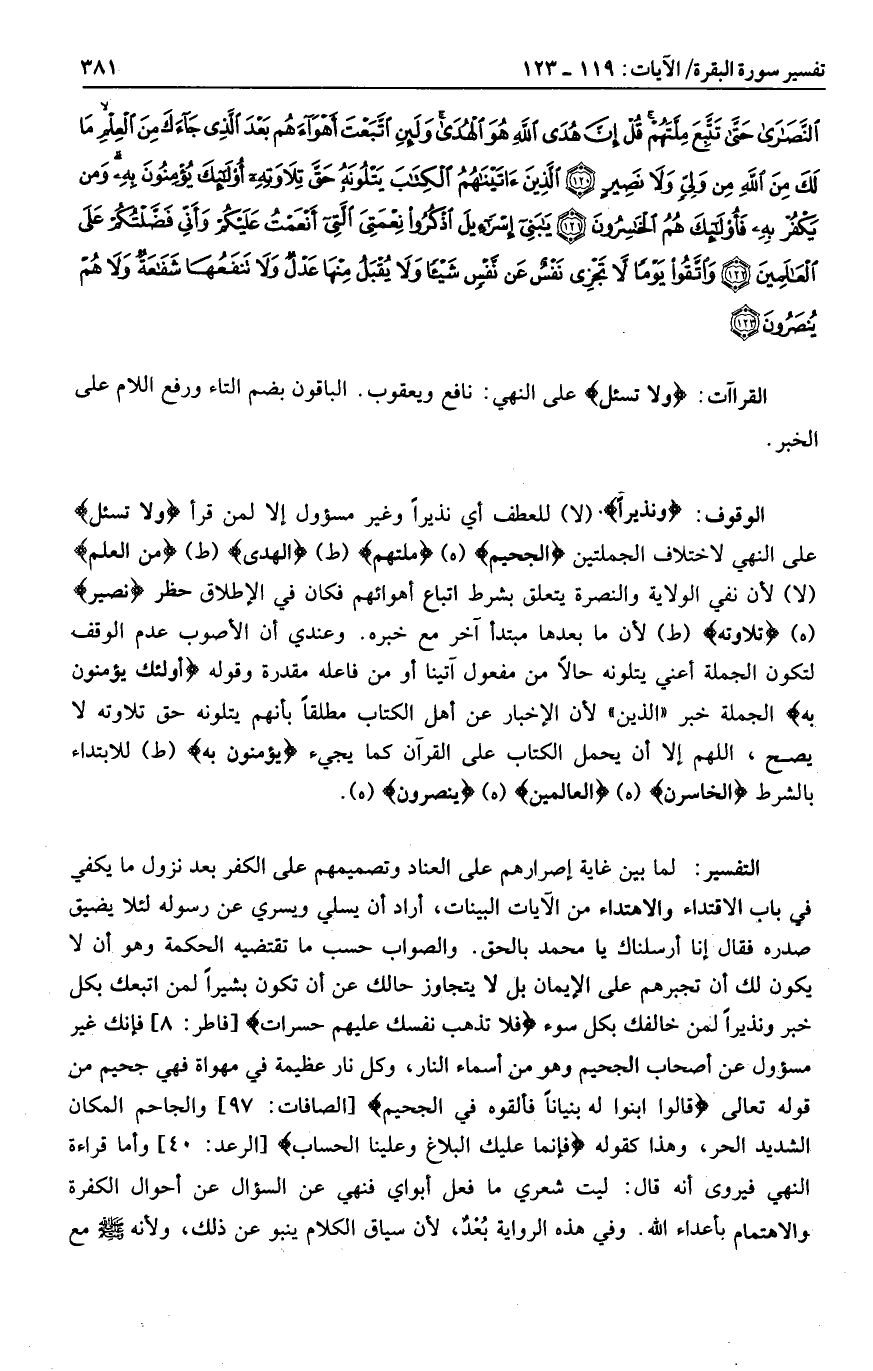 تفسير سورة البقرة/ الآيات: ١١٩ ـ ١٢٣ ٣٨١
ٱلنَّصَٰرَىٰ حَتَّىٰ تَتَّبِعَ مِلَّتَهُمْ ۗ قُلْ إِنَّ هُدَى ٱللَّهِ هُوَ ٱلْهُدَىٰ ۗ وَلَئِنِ ٱتَّبَعْتَ أَهْوَآءَهُم بَعْدَ ٱلَّذِى جَآءَكَ مِنَ ٱلْعِلْمِ ۙ مَا
لَكَ مِنَ ٱللَّهِ مِن وَلِىٍّ وَلَا نَصِيرٍ ﴿١٢٠﴾ ٱلَّذِينَ ءَاتَيْنَٰهُمُ ٱلْكِتَٰبَ يَتْلُونَهُۥ حَقَّ تِلَاوَتِهِۦٓ أُو۟لَٰٓئِكَ يُؤْمِنُونَ بِهِۦ ۗ وَمَن
يَكْفُرْ بِهِۦ فَأُو۟لَٰٓئِكَ هُمُ ٱلْخَٰسِرُونَ ﴿١٢١﴾ يَٰبَنِىٓ إِسْرَٰٓءِيلَ ٱذْكُرُوا۟ نِعْمَتِىَ ٱلَّتِىٓ أَنْعَمْتُ عَلَيْكُمْ وَأَنِّى فَضَّلْتُكُمْ عَلَى
ٱلْعَٰلَمِينَ ﴿١٢٢﴾ وَٱتَّقُوا۟ يَوْمًا لَّا تَجْزِى نَفْسٌ عَن نَّفْسٍ شَيْـًٔا وَلَا يُقْبَلُ مِنْهَا عَدْلٌ وَلَا تَنفَعُهَا شَفَٰعَةٌ وَلَا هُمْ
يُنصَرُونَ ﴿١٢٣﴾
القراآت: ﴿ولا تسئل﴾ على النهي: نافع ويعقوب. الباقون بضم التاء ورفع اللام على
الخبر.
الوقوف: ﴿ونذيراً﴾ (لا) للعطف أي نذيراً وغير مسؤول إلا لمن قرأ ﴿ولا تسئل﴾
على النهي لاختلاف الجملتين ﴿الجحيم﴾ (ه) ﴿ملتهم﴾ (ط) ﴿الهدى﴾ (ط) ﴿من العلم﴾
(لا) لأن نفي الولاية والنصرة يتعلق بشرط اتباع أهوائهم فكان في الإطلاق حظر ﴿نصير﴾
(ه) ﴿تلاوته﴾ (ط) لأن ما بعدها مبتدأ آخر مع خبره. وعندي أن الأصوب عدم الوقف
لتكون الجملة أعني يتلونه حالاً من مفعول آتينا أو من فاعله مقدرة وقوله ﴿أولئك يؤمنون
به﴾ الجملة خبر «الذين» لأن الإخبار عن أهل الكتاب مطلقاً بأنهم يتلونه حق تلاوته لا
يصح ، اللهم إلا أن يحمل الكتاب على القرآن كما يجيء ﴿يؤمنون به﴾ (ط) للابتداء
بالشرط ﴿الخاسرن﴾ (ه) ﴿العالمين﴾ (ه) ﴿ينصرون﴾ (ه).
التفسير: لما بين غاية إصرارهم على العناد وتصميمهم على الكفر بعد نزول ما يكفي
في باب الاقتداء والاهتداء من الآيات البينات، أراد أن يسلي ويسري عن رسوله لئلا يضيق
صدره فقال إنا أرسلناك يا محمد بالحق. والصواب حسب ما تقتضيه الحكمة وهو أن لا
يكون لك أن تجبرهم على الإيمان بل لا يتجاوز حالك عن أن تكون بشيراً لمن اتبعك بكل
خبر ونذيراً لمن خالفك بكل سوء ﴿فلا تذهب نفسك عليهم حسرات﴾ [فاطر: ٨] فإنك غير
مسؤول عن أصحاب الجحيم وهو من أسماء النار، وكل نار عظيمة في مهواة فهي جحيم من
قوله تعالى ﴿قالوا ابنوا له بنياناً فألقوه في الجحيم﴾ [الصافات: ٩٧] والجاحم المكان
الشديد الحر، وهذا كقوله ﴿فإنما عليك البلاغ وعلينا الحساب﴾ [الرعد: ٤٠] وأما قراءة
النهي فيروى أنه قال: ليت شعري ما فعل أبواي فنهي عن السؤال عن أحوال الكفرة
والاهتمام بأعداء الله. وفي هذه الرواية بُعْدٌ، لأن سياق الكلام ينبو عن ذلك، ولأنه ﷺ مع